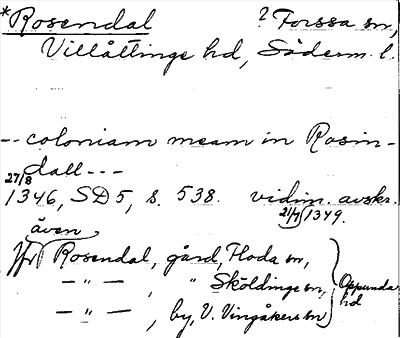 *Rosendal ? Forssa sn,
Villåttinge hd, Söderm. l.
-- coloniam meam in Rosin-
dall ---
27/8
1346, SD 5, s. 538. vidim. avskr.
21/7 1349.
även
Jfr Rosendal, gård, Floda sn,
— " — , " Sköldinge sn,
— " — , by, V. Vingåkers sn
Oppunda
hd